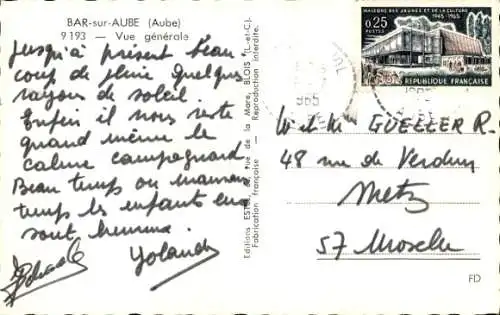 BAR-sur-AUBE (Aube)
9193 — Vue générale
Jusqu'à présent beau
coup de pluie quelques
rayons de soleil.
Enfin il nous reste
quand même le
calme campagnard
Beau temps ou mauvais
temps les enfants en
sont
Yolande
Editions rue de la Mare, BLOIS (L.-et-C.)
Fabrication française — Reproduction interdite.
MAISONS DES JEUNES ET DE LA CULTURE
1945-1965
0,25 POSTES
RÉPUBLIQUE FRANÇAISE
1965
GUELLER R.
48 rue de Verdun
Metz
57 Moselle
FD